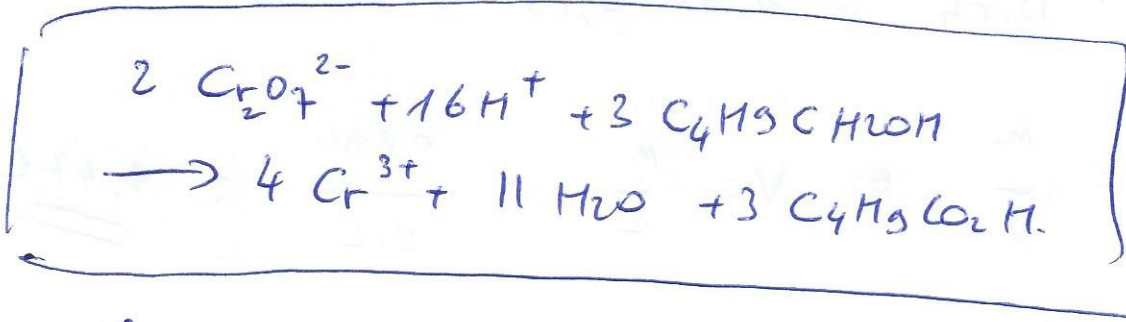 2 Cr₂O₇²⁻ + 16 H⁺ + 3 C₄H9CH2OH
⟶ 4 Cr³⁺ + 11 H2O + 3 C₄H9CO₂H.